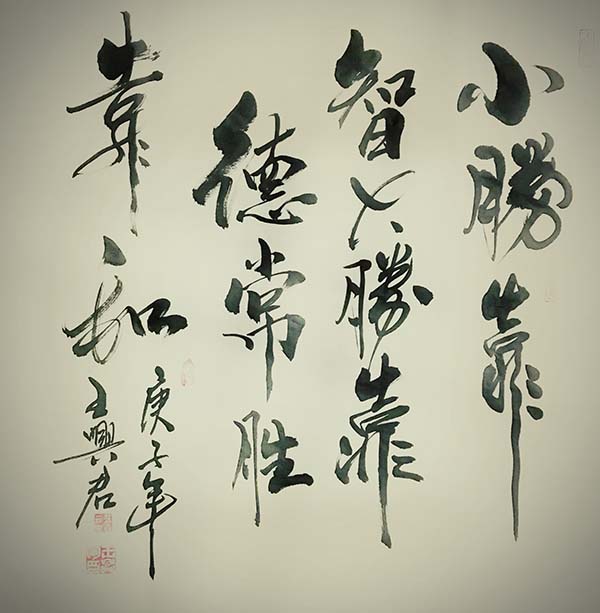 小勝靠
智大勝靠
德常胜
靠和
庚子年
王興君